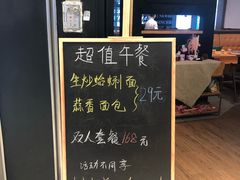 超值午餐
生炒蛤蜊面
蒜香面包
29元
双人套餐168元
活动不同享